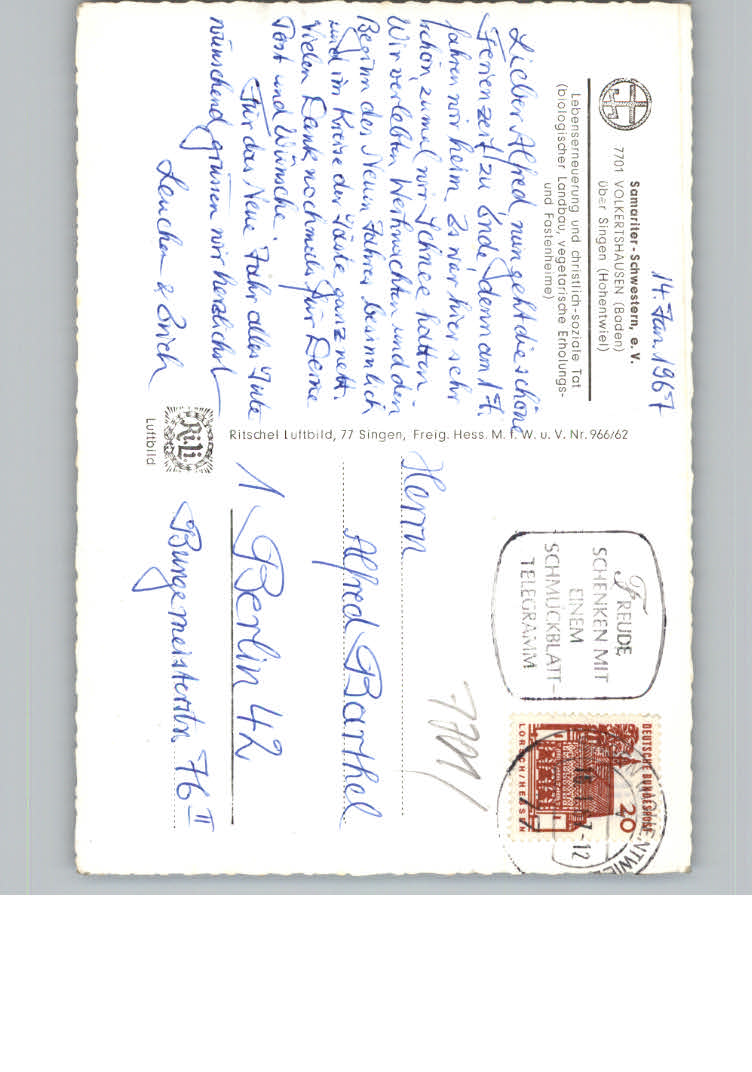 14. Jan. 1967
Samariter-Schwestern, e. V.
7701 VOLKERTSHAUSEN (Baden)
über Singen (Hohentwiel)
Lebenserneuerung und christlich-soziale Tat
(biologischer Landbau, vegetarische Erholungs-
und Fastenheime)
Lieber Alfred, nun geht die schöne
Ferienzeit zu Ende, denn am 17.
fahren wir heim. Es war hier sehr
schön, zumal wir Schnee hatten.
Wir verlebten Weihnachten und den
Beginn des Neuen Jahres besinnlich
und im Kreise der Gäste ganz nett.
Vielen Dank nochmals für Deine
Post und Wünsche.
Für das Neue Jahr alles Gute
wünschend grüssen wir herzlichst
Lenchen & Erich
Ritschel Luftbild, 77 Singen, Freig. Hess. M. f. W. u. V. Nr. 966/62
RiLi
Luftbild
FREUDE
SCHENKEN MIT
EINEM
SCHMUCKBLATT-
TELEGRAMM
DEUTSCHE BUNDESPOST
20
LORSCH/HESSEN
-12
7701
Herrn
Alfred Barthel
1 Berlin 42
Burgemeisterstr. 76 II